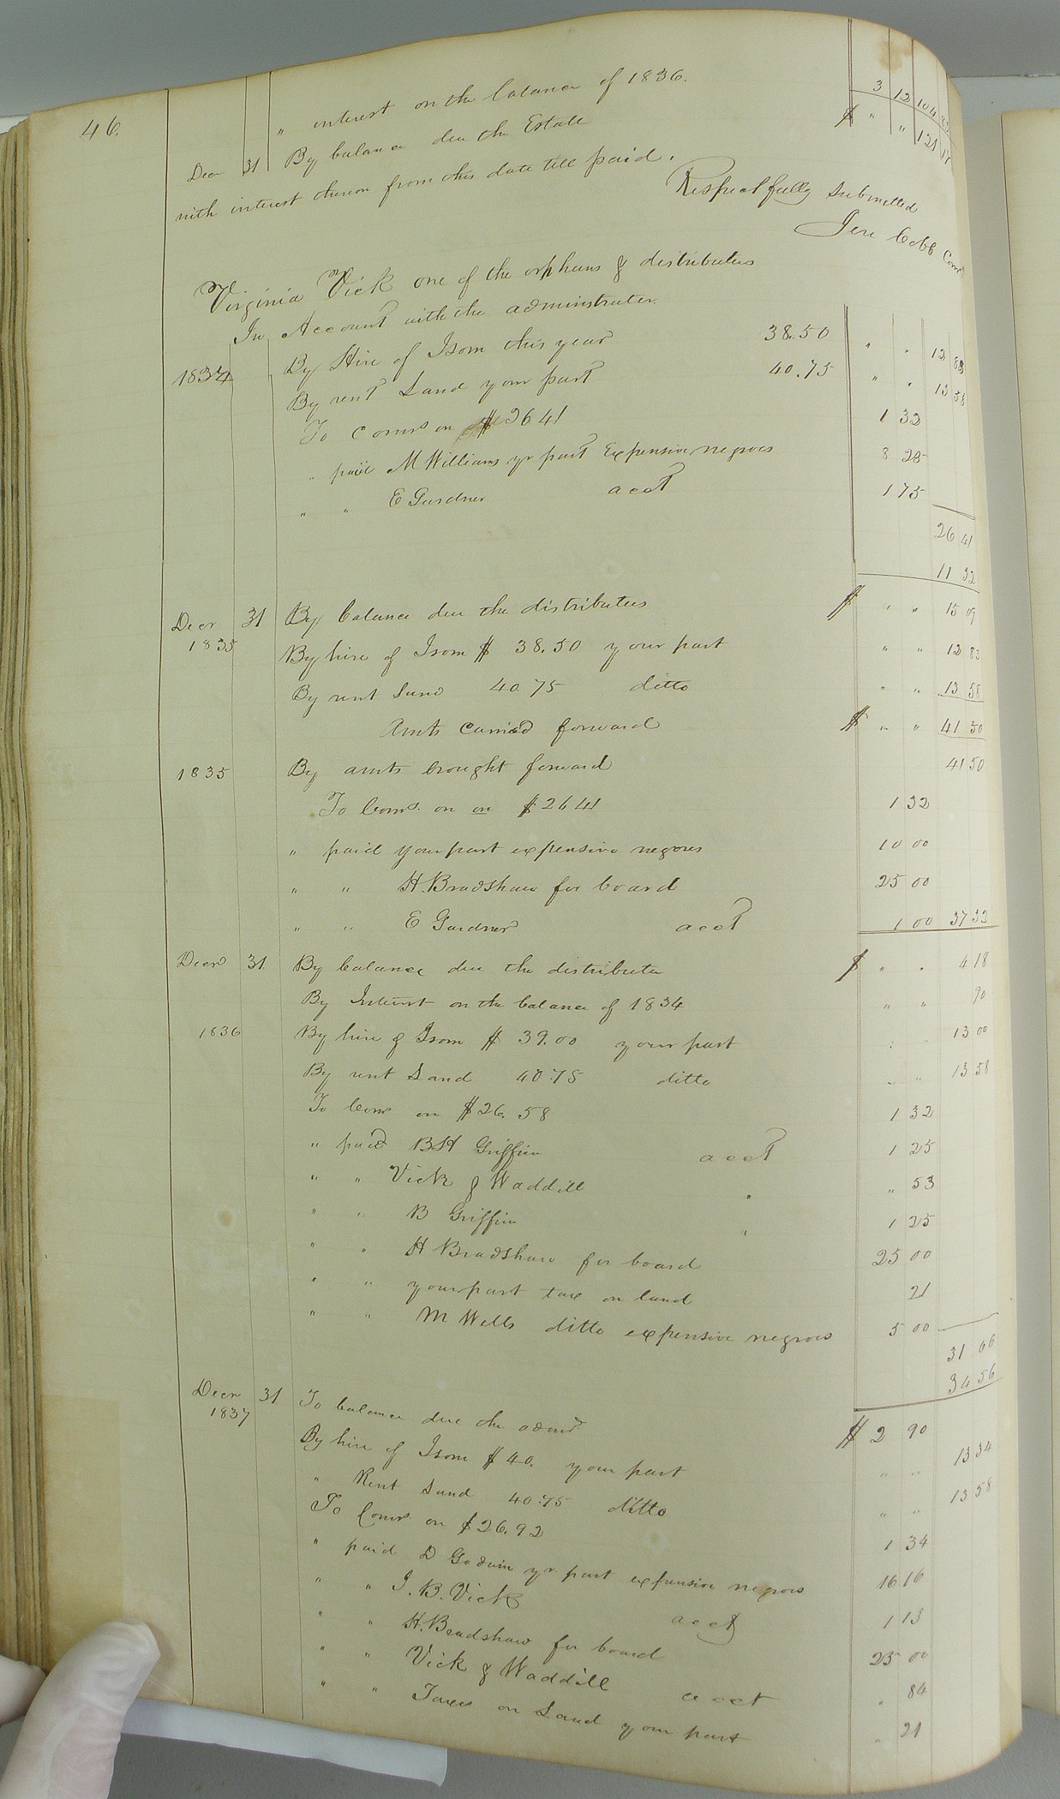 46.
" interest on the balance of 1836. 3 12 104
Decr 31 By balance due the Estate $ " " 121
with interest thereon from this date till paid.
Respectfully Submitted
Jere Cobb Comr
Virginia Vick one of the orphans & distributees
In Account with the administrator.
1834 By Hire of Isom this year 38.50 " " 12 83
By rent Land your part 40.75 " " 13 58
To Comrs on $26 41 1 32
" paid M Williams yr part Expensive negroes 8 25
" " E Gardner acct 1 75
26 41
11 32
Decr 31 By balance due the distributees $ " " 15 09
1835 By hire of Isom $ 38.50 your part " " 12 83
By rent Land 40 75 ditto " " 13 58
Amts Carried forward $ " " 41 50
1835 By amts brought forward 41 50
To Coms. on on $26 41 1 32
" paid your part expensive negroes 10 00
" " H. Bradshaw for board 25 00
" " E Gardner acct 1 00 37 32
Decr 31 By balance due the distributee $ " " 4 18
By Interest on the balance of 1834 " " 90
1836 By hire of Isom $ 39.00 your part " " 13 00
By rent Land 40.75 ditto " " 13 58
To Coms on $26.58 1 32
" paid BH Griffin acct 1 25
" " Vick & Waddill " " 53
" " B Griffin " 1 25
" " H Bradshaw for board 25 00
" " your part tax on land 21
" " M Wells ditto expensive negroes 5 00
31 66
34 56
Decr 31 To balance due the admr $ 2 90
1837 By hire of Isom $40. your part " " 13 34
" Rent Land 40.75 ditto " " 13 58
To Coms on $26.92 1 34
" paid D Godwin yr part expensive negroes 16 16
" " J. B. Vick acct 1 13
" " H. Bradshaw for board 25 00
" " Vick & Waddill acct " 84
" " Taxes on Land your part " 21